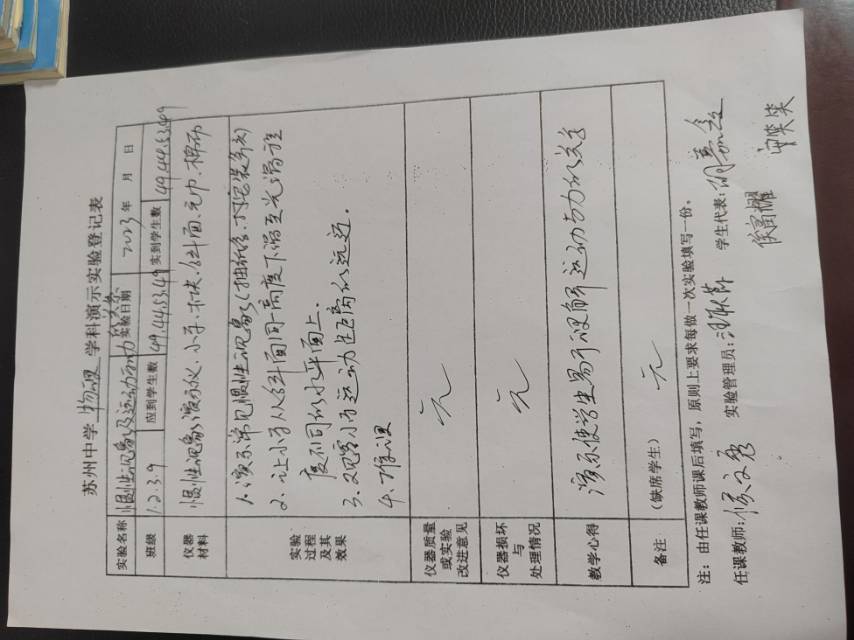 苏州中学 物理 学科演示实验登记表
实验名称 惯性现象及运动和力的关系 实验日期 2023年 月 日
班级 1.2.3.9 应到学生数 49.44.53.49 实到学生数 49.44.53.49
仪器材料 惯性现象演示仪.小车.木块.斜面.毛巾.棉布
实验过程及其效果
1.演示常见惯性现象(抽纸条.
2.让小车从斜面同一高度下滑至光滑程
度不同的水平面上.
3.观察小车运动距离的远近.
4.
仪器质量或实验改进意见 无
仪器损坏与处理情况 无
教学心得 演示使学生易于理解运动与力的关系
备注 (缺席学生) 无
注：由任课教师课后填写，原则上要求每做一次实验填写一份。
任课教师: 实验管理员: 学生代表: